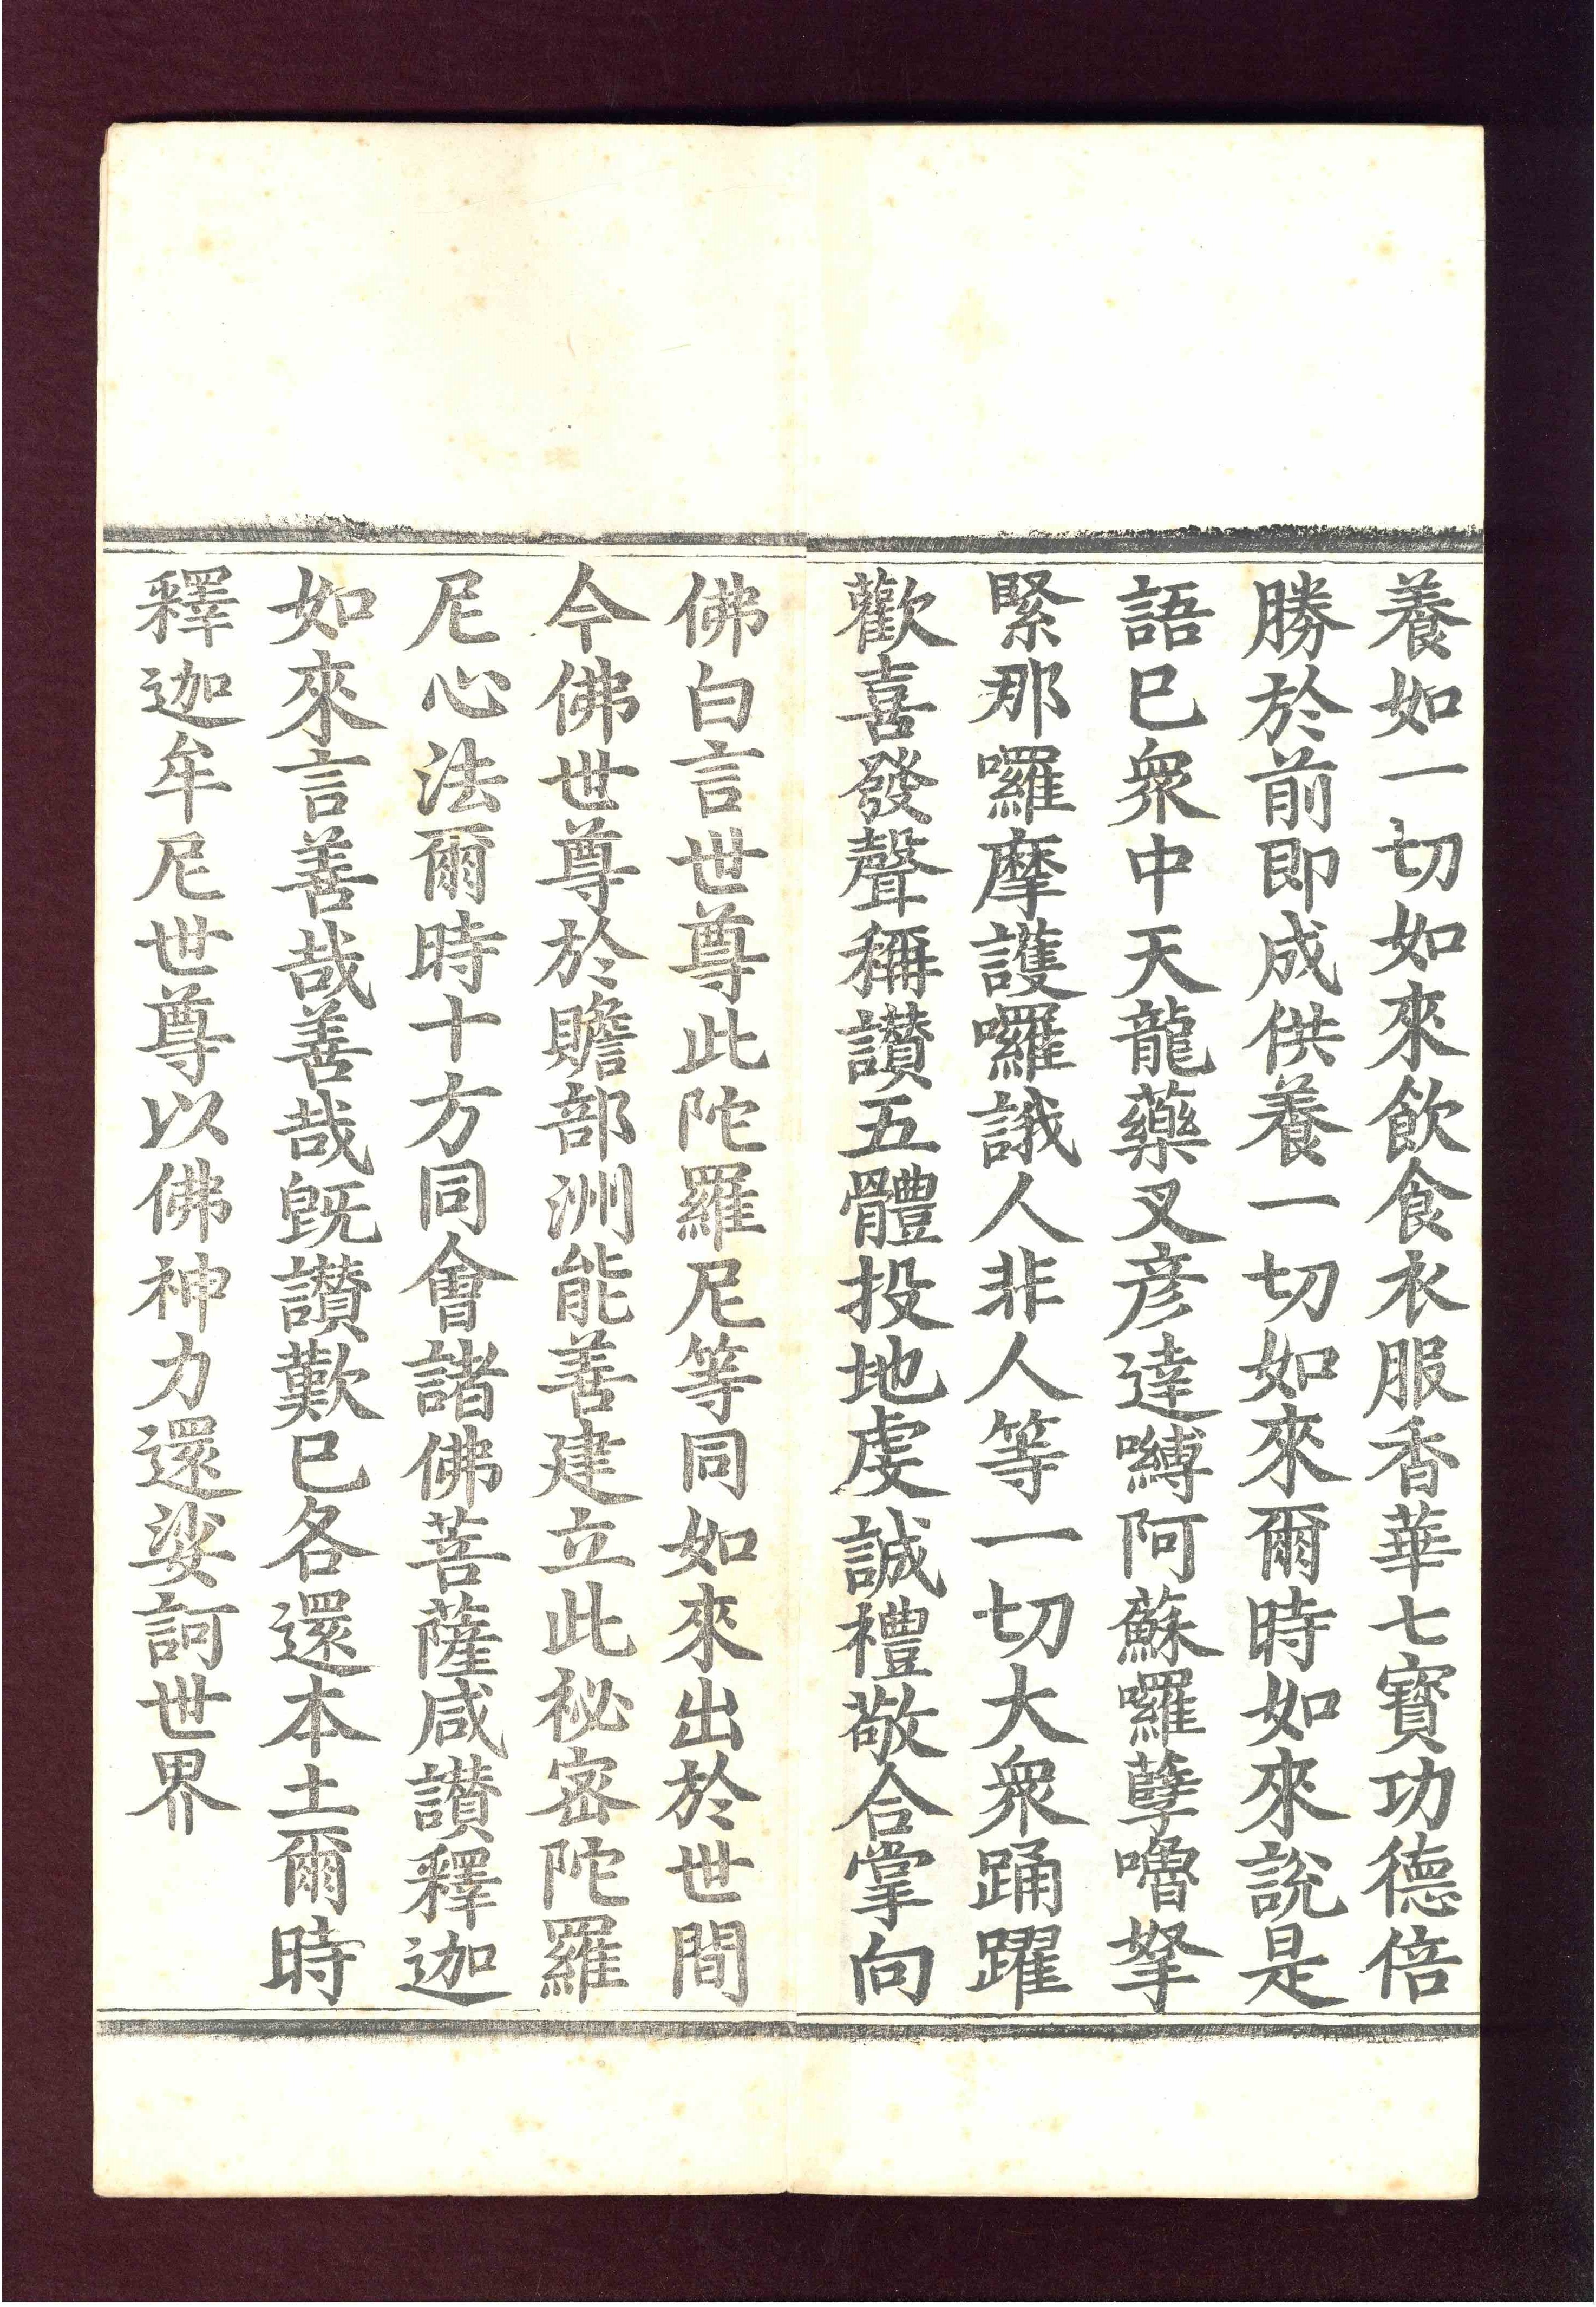 養如一切如來飲食衣服香華七寳功德倍
勝於前即成供養一切如來爾時如來說是
語已衆中天龍藥叉彥達嚩阿蘇囉孽嚕拏
緊那囉摩護囉誐人非人等一切大衆踊躍
歡喜發聲稱讃五體投地虔誠禮敬合掌向
佛白言世尊此陀羅尼等同如來出於世間
今佛世尊於贍部洲能善建立此祕密陀羅
尼心法爾時十方同會諸佛菩薩咸讃釋迦
如來言善哉善哉既讃歎已各還本土爾時
釋迦牟尼世尊以佛神力還娑訶世界